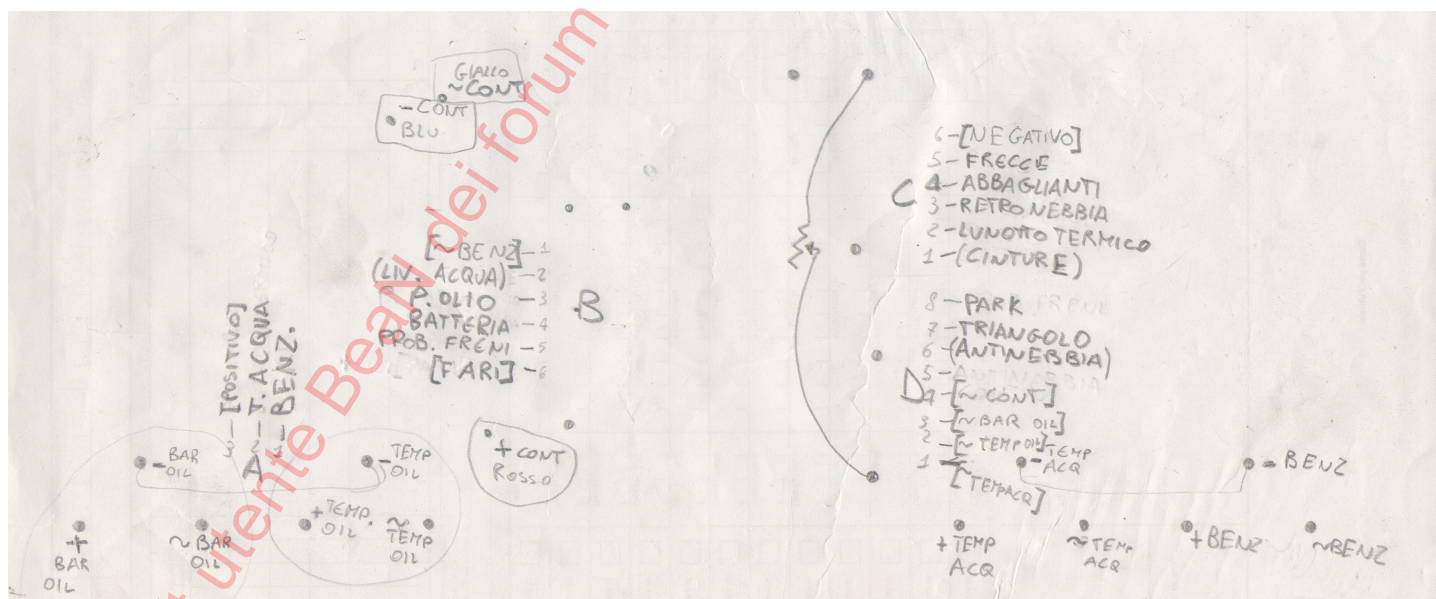 GIALLO
~CONT
-CONT
BLU
[~BENZ]-1
(LIV. ACQUA)-2
P.OLIO -3
BATTERIA -4
PROB. FRENI -5
[FARI]-6
B
3-[POSITIVO]
2-T. ACQUA
1-BENZ.
A
- BAR
OIL
- TEMP
OIL
+ CONT
ROSSO
+
BAR
OIL
~ BAR
OIL
+ TEMP.
OIL
~
TEMP
OIL
C
6-[NEGATIVO]
5-FRECCE
4-ABBAGLIANTI
3-RETRONEBBIA
2-LUNOTTO TERMICO
1-(CINTURE)
D
8-PARK
7-TRIANGOLO
6-(ANTINEBBIA)
5-ANTINEBBIA
4-[~CONT]
3-[~BAR OIL]
2-[~TEMP OIL]
1-
[~TEMPACQ]
- TEMP
ACQ
- BENZ
+ TEMP
ACQ
~ TEMP
ACQ
+BENZ
~BENZ
utente BeaN dei forum